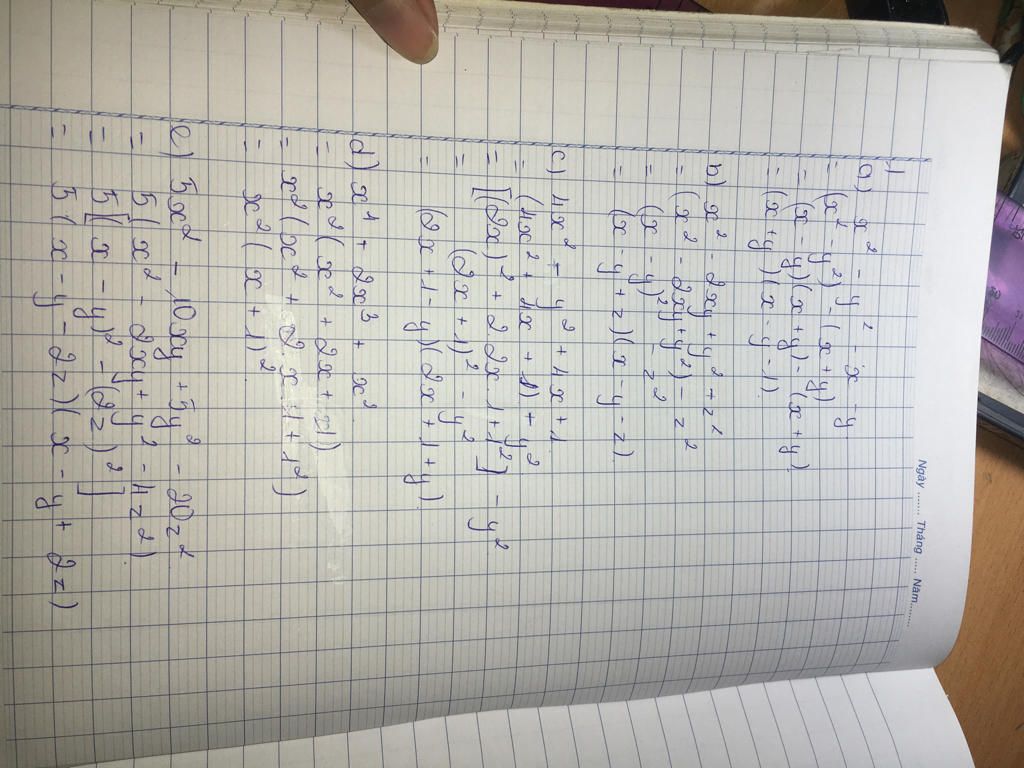 Ngày ....... Tháng ..... Năm........
1
a) x² - y² - x - y
= (x² - y²) - (x + y)
= (x - y)(x + y) - (x + y)
= (x + y)(x - y - 1)
b) x² - 2xy + y² + z²
= (x² - 2xy + y²) - z²
= (x - y)² - z²
= (x - y + z)(x - y - z)
c) 4x² - y² + 4x + 1
= (4x² + 4x + 1) - y²
= [(2x)² + 2 2x 1 + 1²] - y²
= (2x + 1)² - y²
= (2x + 1 - y)(2x + 1 + y)
d) x⁴ + 2x³ + x²
= x²(x² + 2x + 1)
= x²(x² + 2 x 1 + 1²)
= x²(x + 1)²
e) 5x² - 10xy + 5y² - 20z²
= 5(x² - 2xy + y² - 4z²)
= 5[(x - y)² - (2z)²]
= 5(x - y - 2z)(x - y + 2z)